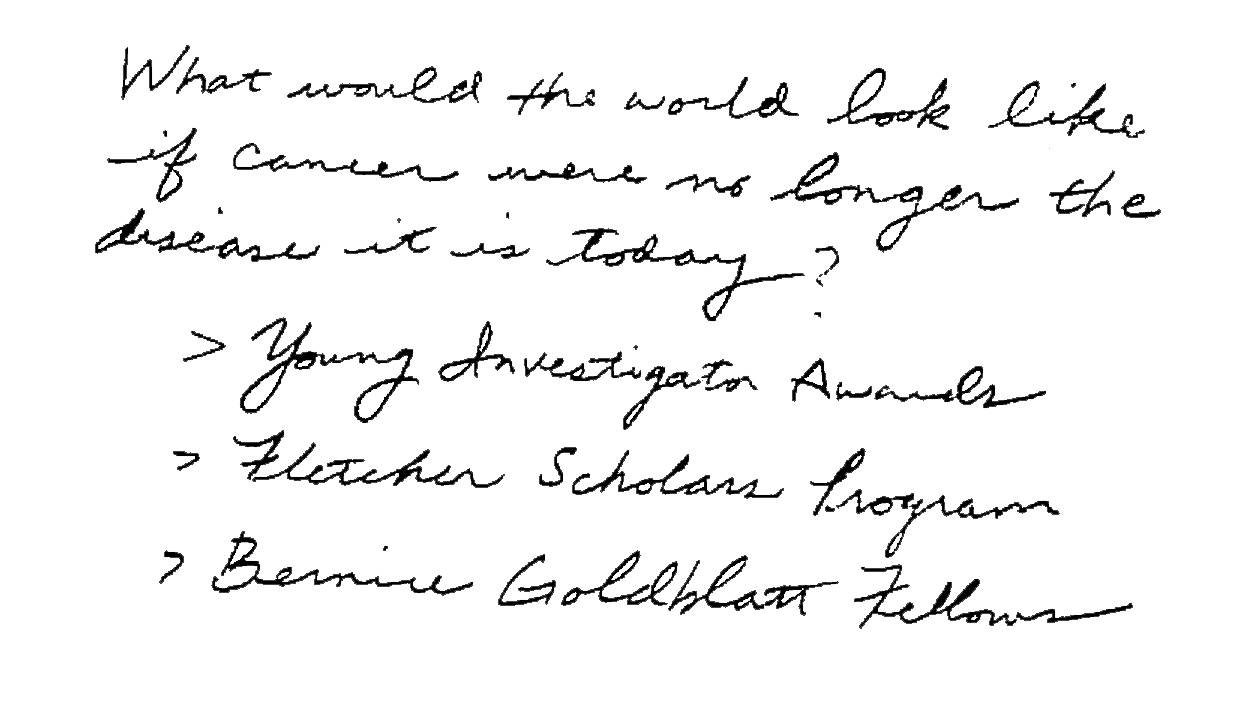 What would the world look like
if cancer were no longer the
disease it is today?
> Young Investigator Awards
> Fletcher Scholars Program
> Bernice Goldblatt Fellows